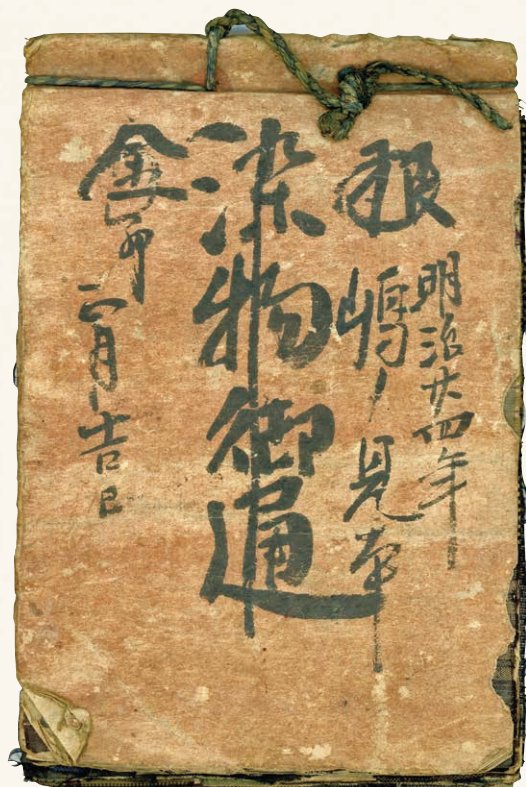 明治廿四年
嶋ノ見本
染物御通
月吉日